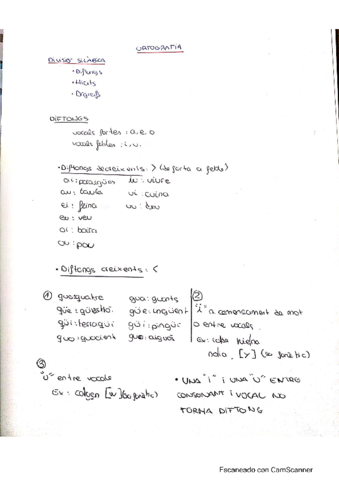 ORTOGRAFIA
DIVISIÓ SIL·LÀBICA
· Diftongs
· Hiats
· Dígrafs
DIFTONGS
vocals fortes : a, e, o
vocals febles : i, u.
· Diftongs decreixents : > (de forta a feble)
ai : paraigües iu : viure
au : taula ui : cuina
ei : feina uu : duu
eu : veu
oi : boira
ou : pou
· Diftongs creixents : <
① qua: quatre gua : guants
qüe : qüestió güe : ungüent
qüi : terraqüi güi : pingüí
quo : quocient guo : aiguós
②
"i" a començament de mot
o entre vocals.
Ex: iode hiena
noia. [y] (so fonètic)
③
"u" entre vocals
Ex: cauen [w] (so fonètic)
· UNA "I" i UNA "U" ENTRE
CONSONANT i VOCAL NO
FORMA DIFTONG
Escaneado con CamScanner